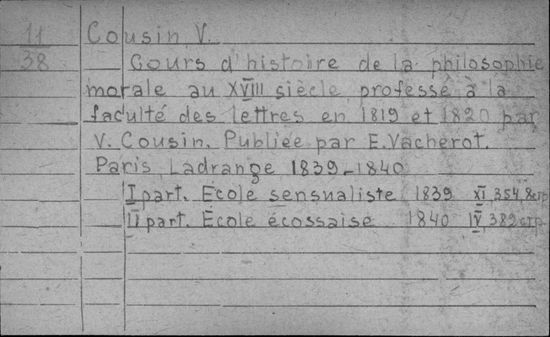 11
38
Cousin, V.
Cours d'histoire de la philosophie
morale au XVIII siècle, professé à la
faculté des lettres en 1819 et 1820 par
V. Cousin. Publiée par E. Vacherot.
Paris, Ladrange 1839-1840
I part. École sensualiste 1839 XI, 354, 8 стр
II part. École écossaise 1840 IV, 382 стр.